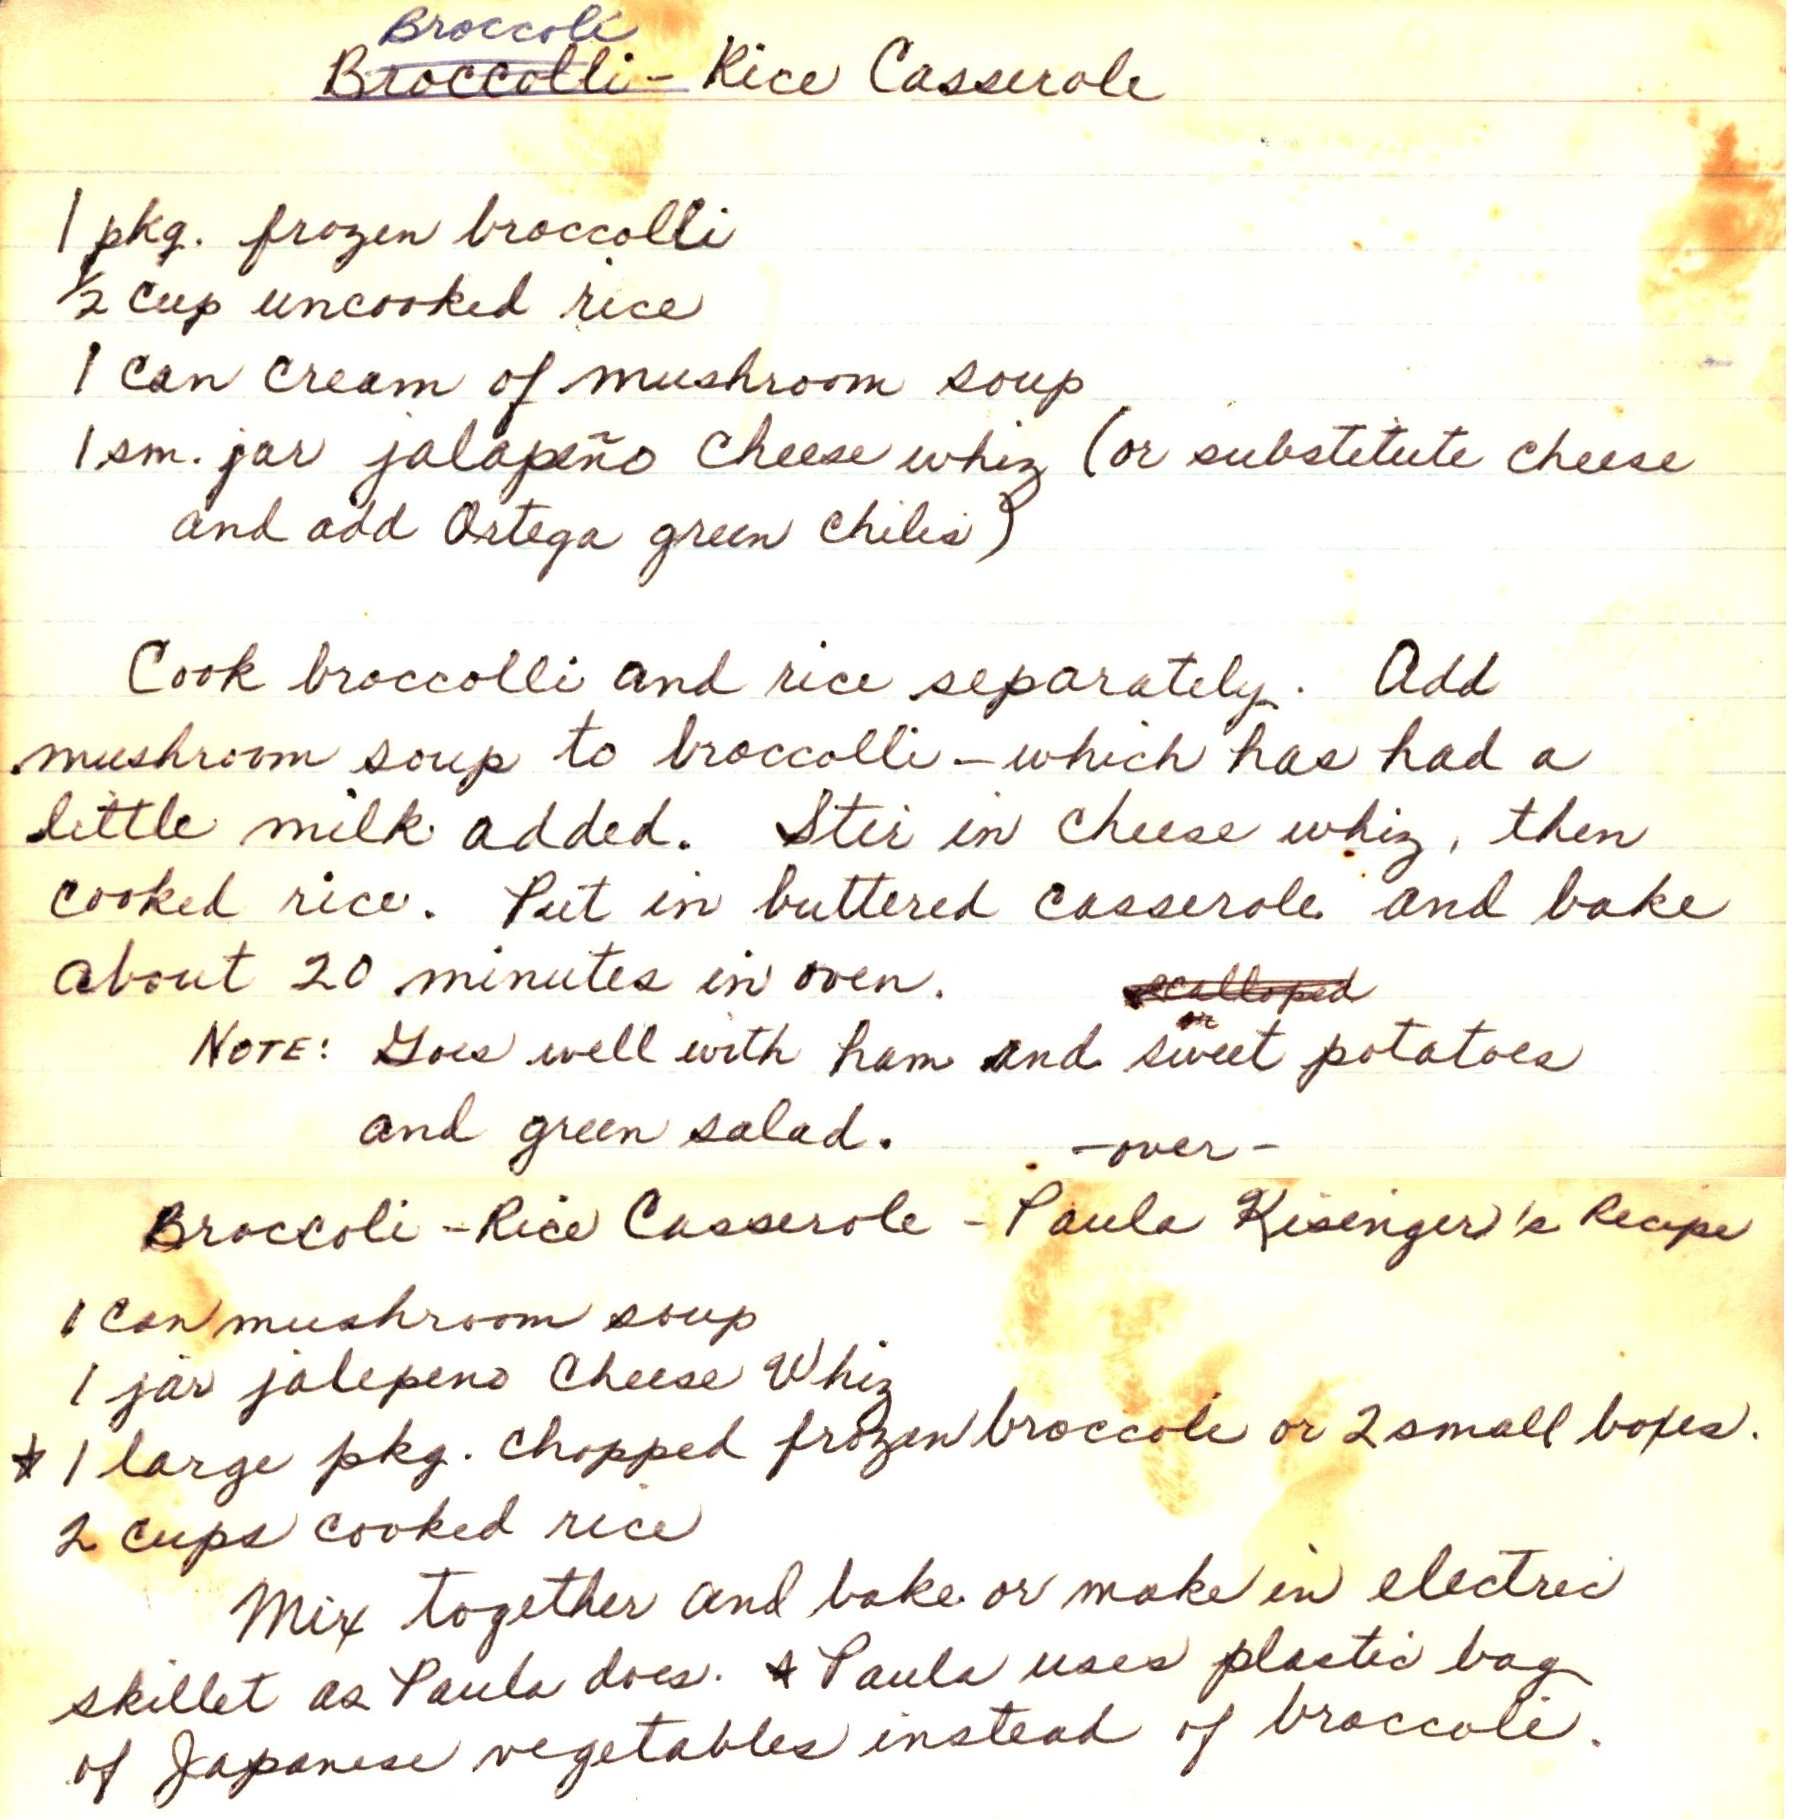 Broccoli
Broccolli - Rice Casserole
1 pkg. frozen broccolli
1/2 cup uncooked rice
1 can cream of mushroom soup
1 sm. jar jalapeño cheese whiz (or substitute cheese
and add Ortega green chilis)
Cook broccolli and rice separately. Add
mushroom soup to broccolli - which has had a
little milk added. Stir in cheese whiz, then
cooked rice. Put in buttered casserole and bake
about 20 minutes in oven.
scalloped
or
NOTE: Goes well with ham and sweet potatoes
and green salad.
- over -
Broccoli - Rice Casserole - Paula Kisinger's Recipe
1 can mushroom soup
1 jar jalepeno Cheese Whiz
* 1 large pkg. chopped frozen broccoli or 2 small boxes.
2 cups cooked rice
Mix together and bake or make in electric
skillet as Paula does. * Paula uses plastic bag
of Japanese vegetables instead of broccoli.